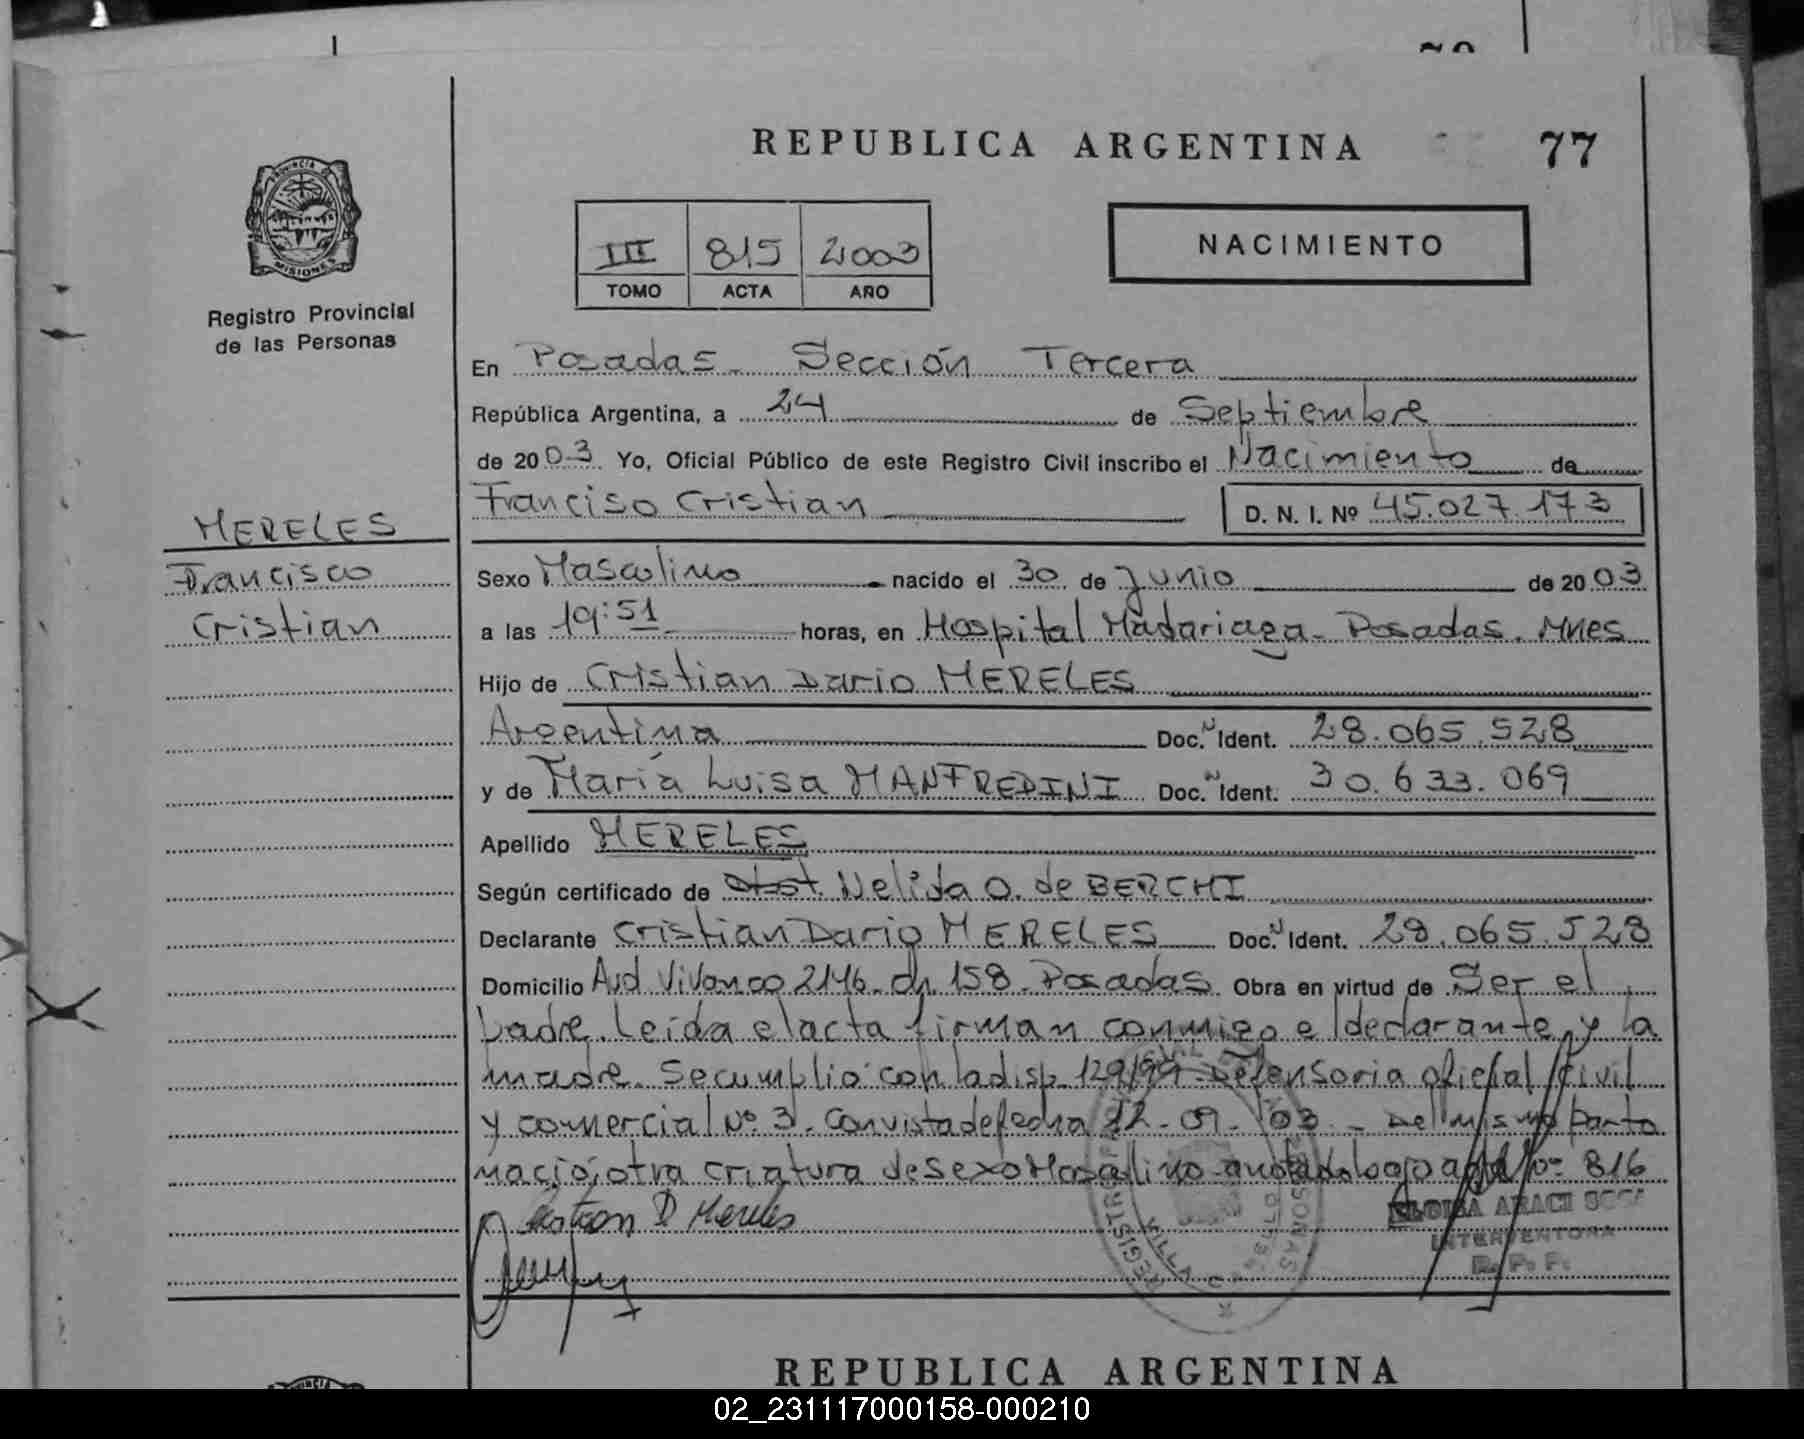 REPUBLICA ARGENTINA 77
PROVINCIA DE MISIONES
III 815 2003
TOMO ACTA AÑO
NACIMIENTO
Registro Provincial
de las Personas
MERELES
Francisco
Cristian
En Posadas - Sección Tercera
República Argentina, a 24 de Septiembre
de 2003. Yo, Oficial Público de este Registro Civil inscribo el Nacimiento de
Franciso Cristian D. N. I. Nº 45.027.173
Sexo Masculino nacido el 30 de Junio de 2003
a las 19:51 horas, en Hospital Madariaga - Posadas. Mnes
Hijo de Cristian Dario MERELES
Argentina Doc. Ident. 28.065.528
y de María Luisa MANFREDINI Doc. Ident. 30.633.069
Apellido MERELES
Según certificado de Obst. Nelida O. de BERCHI
Declarante Cristian Dario MERELES Doc. Ident. 28.065.528
Domicilio Avd Vivanco 2146 - ch 158 - Posadas. Obra en virtud de Ser el
padre. Leída el acta firman conmigo el declarante y la
madre. Se cumplió con la disp. 129/99 - Defensoria oficial Civil
y comercial Nº 3. Con vista de fecha 12-09-03 - Del mismo parto
nació otra criatura de sexo Masculino anotado bajo acta Nº 816
Cristian D Mereles
ELOISA ARACI SOSA
INTERVENTORA
R. P. P.
VILLA
REPUBLICA ARGENTINA
02_231117000158-000210